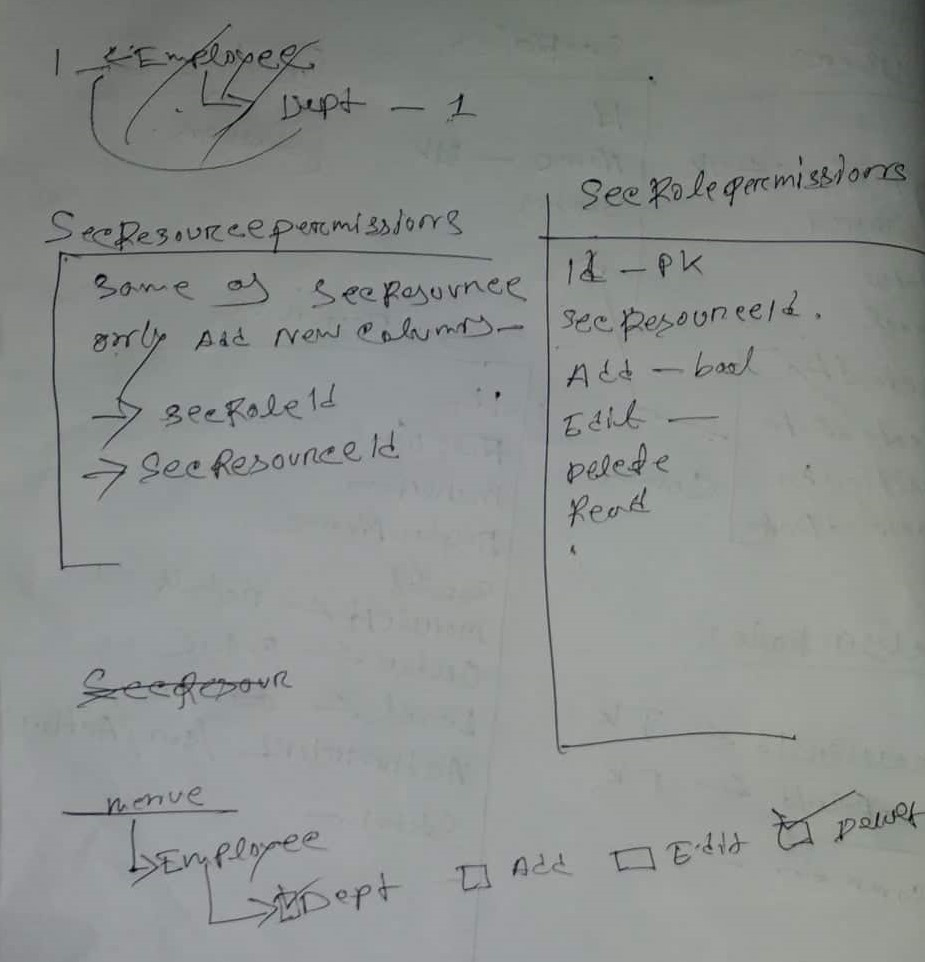 1 Employee
Dept - 1
SecResourcepermissions
Same as SecResource
only Add New Columns -
→ SecRoleId
→ SecResourceId
SecRolepermissions
Id - PK
SecResourceId.
Add - bool
Edit -
Delete
Read
SecResour
menue
Employee
Dept Add Edit Delet